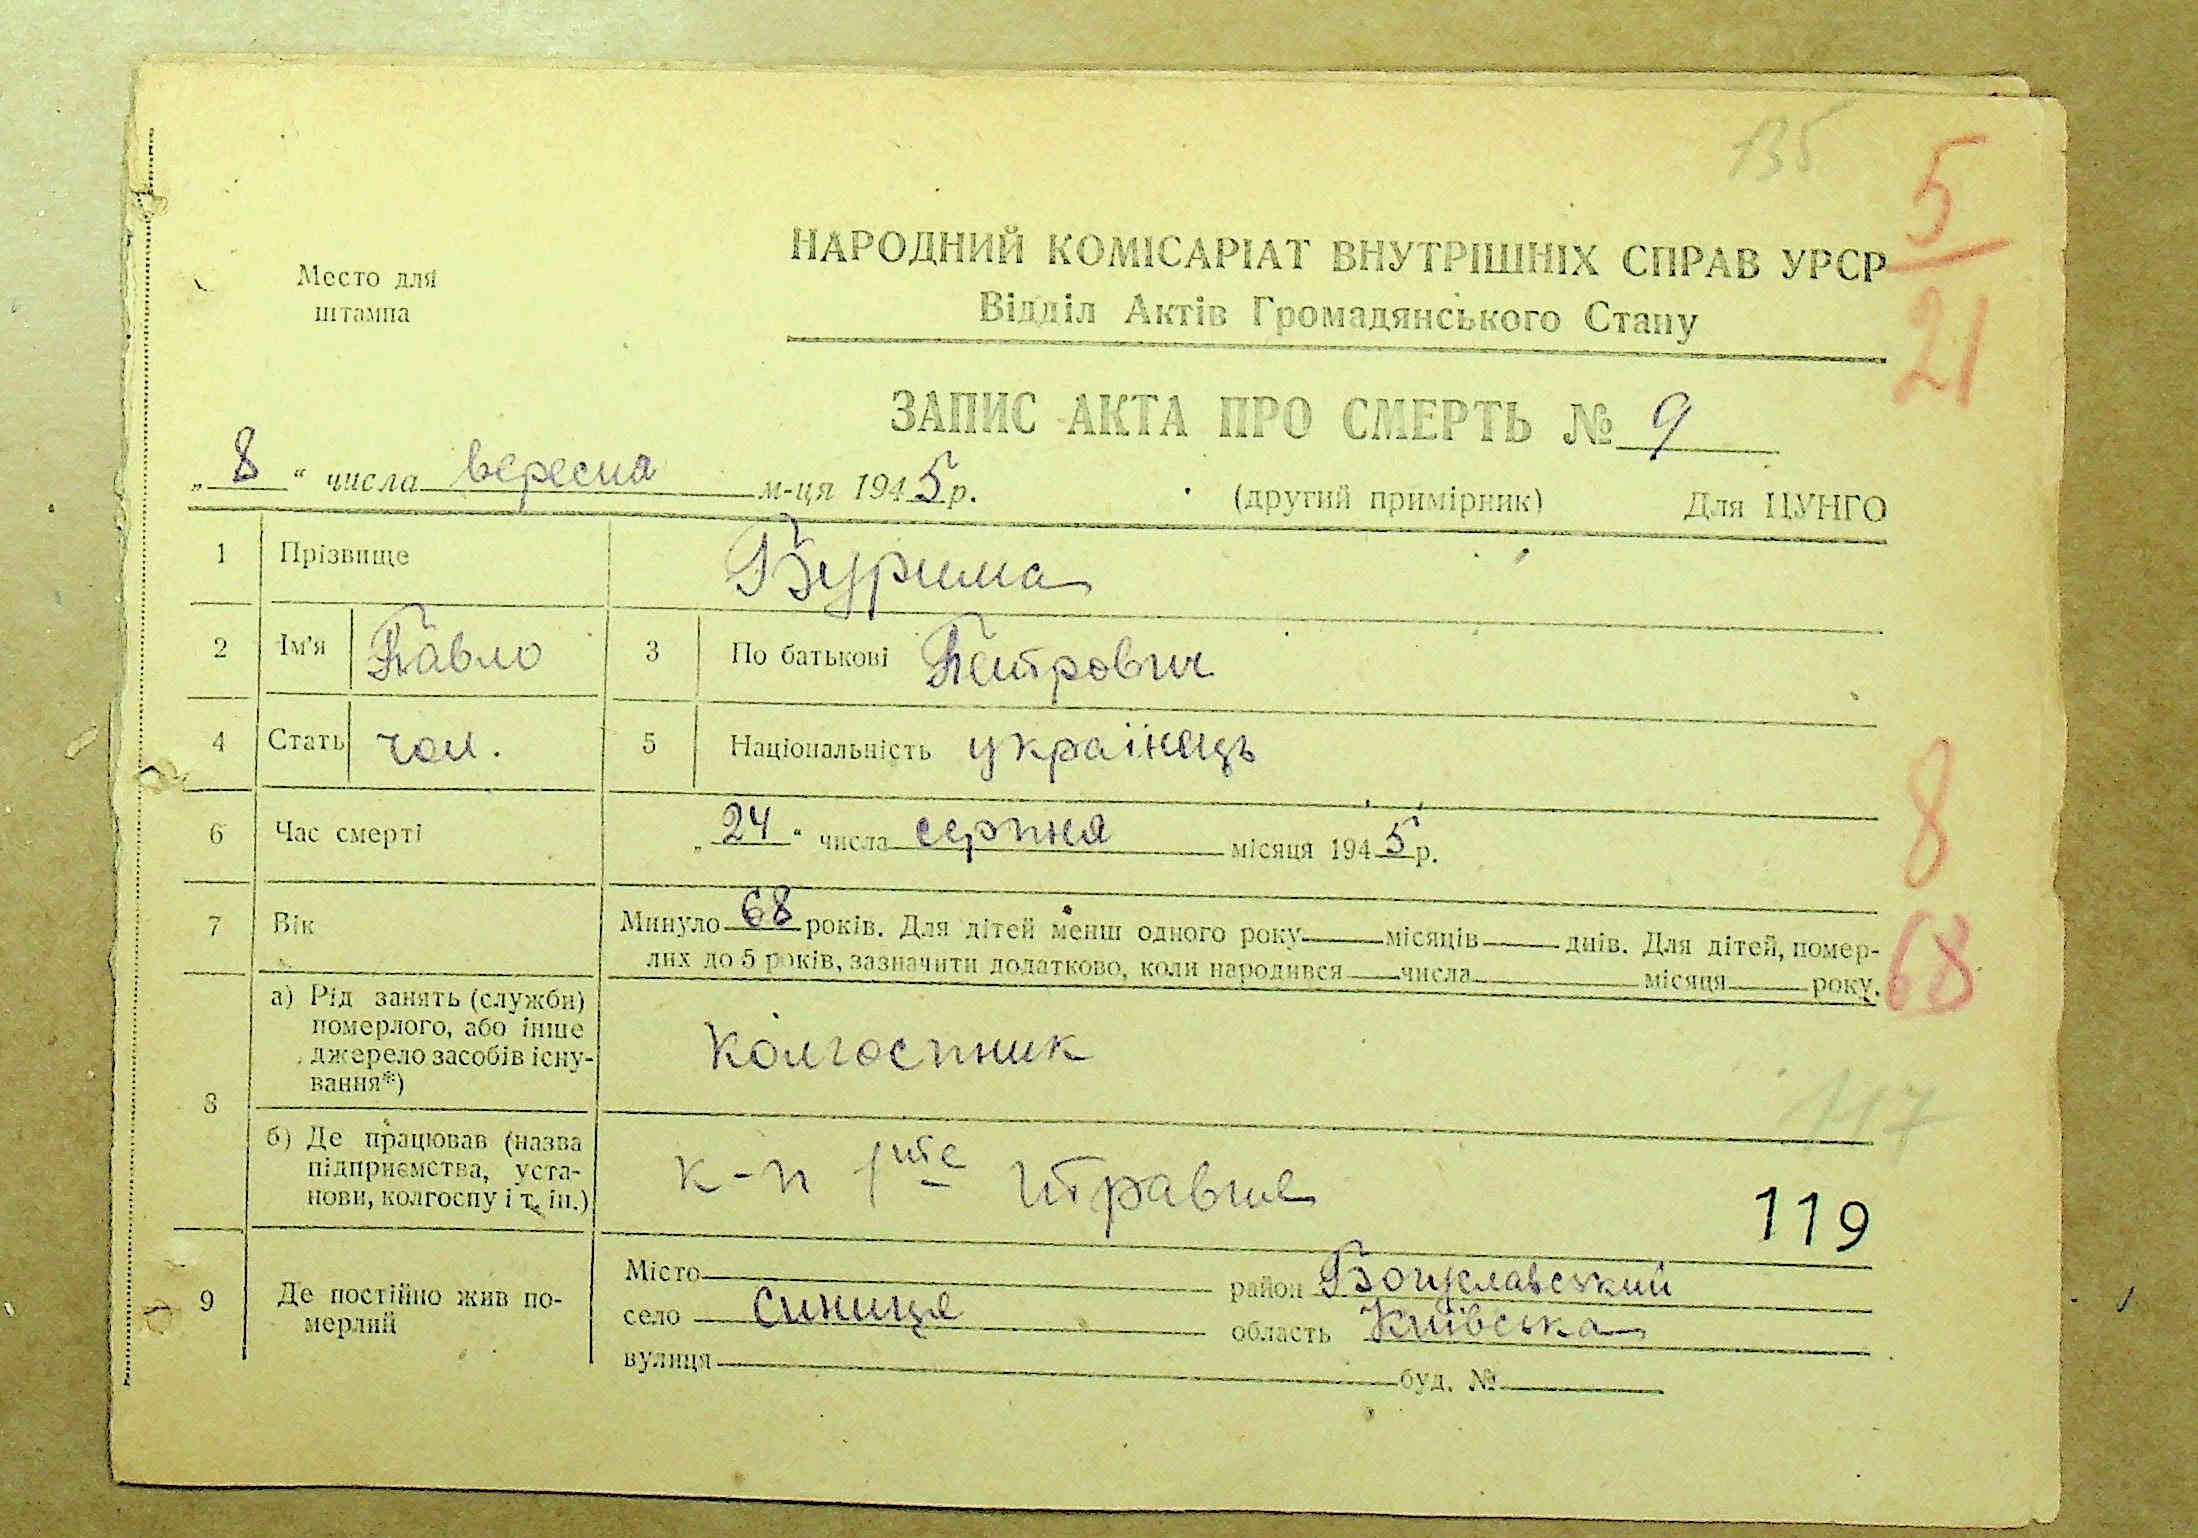 135
5
21
Место для
штампа
НАРОДНИЙ КОМІСАРІАТ ВНУТРІШНІХ СПРАВ УРСР
Відділ Актів Громадянського Стану
ЗАПИС АКТА ПРО СМЕРТЬ № 9
„8“ числа вересня м-ця 1945 р. (другий примірник) Для ЦУНГО
1 Прізвище Бурима
2 Ім'я Павло 3 По батькові Петрович
4 Стать чол. 5 Національність українець
6 Час смерті „24“ числа серпня місяця 1945 р.
8
7 Вік Минуло 68 років. Для дітей менш одного року місяців днів. Для дітей, помер-
лих до 5 років, зазначити додатково, коли народився числа місяця року.
68
8 а) Рід занять (служби)
померлого, або інше
джерело засобів існу-
вання*)
Колгоспник
117
б) Де працював (назва
підприємства, уста-
нови, колгоспу і т. ін.)
к-п 1ше травня
119
9 Де постійно жив по-
мерлий
Місто район Богуславський
село Синиця область Київська
вулиця буд. №